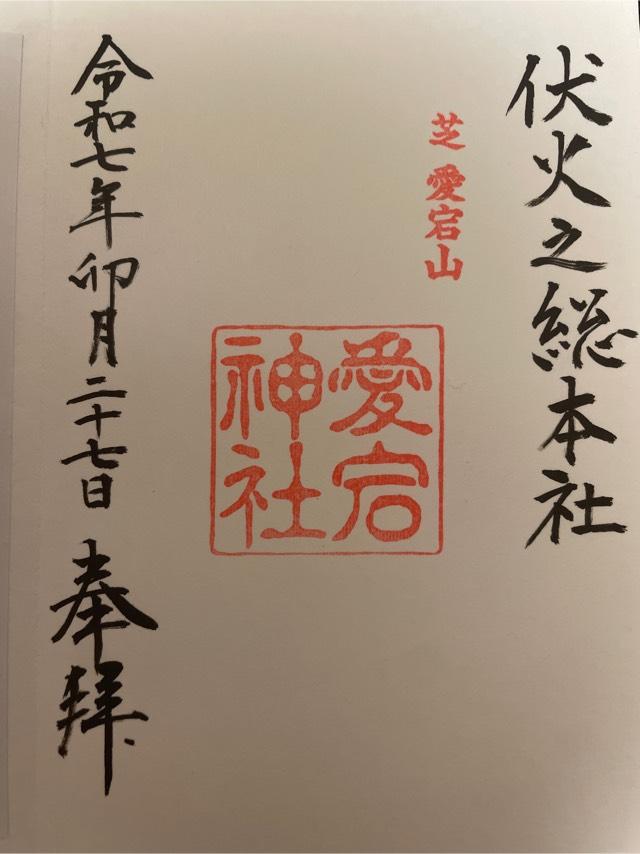 伏火之総本社
芝 愛宕山
愛宕
神社
令和七年卯月二十七日 奉拝